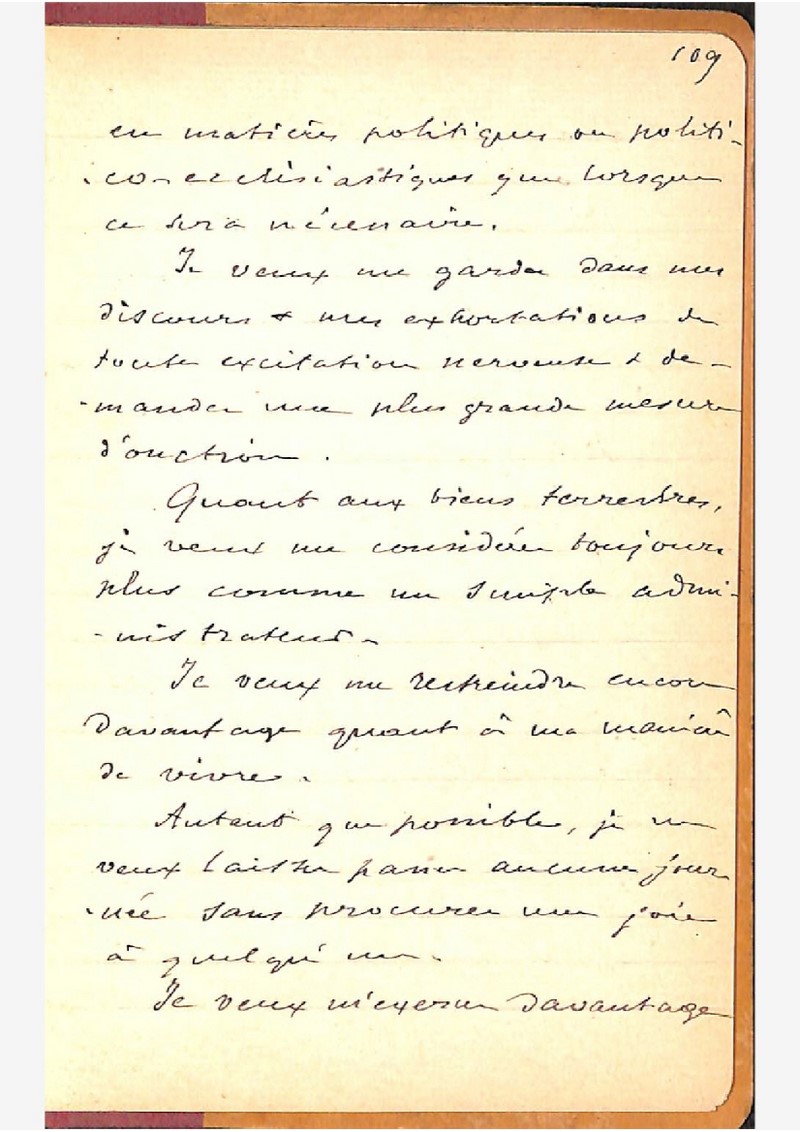 109
en matières politiques ou politi-
-co-ecclésiastiques que lorsque
ce sera nécessaire.
Je veux me garder dans mes
discours & mes exhortations de
toute excitation nerveuse & de-
-mander une plus grande mesure
d'onction.
Quant aux biens terrestres,
je veux me considérer toujours
plus comme un simple admi-
-nistrateur.
Je veux me restreindre encore
davantage quant à ma manière
de vivre.
Autant que possible, je ne
veux laisser passer aucune jour
-née sans procurer une joie
à quelqu'un.
Je veux m'exercer davantage